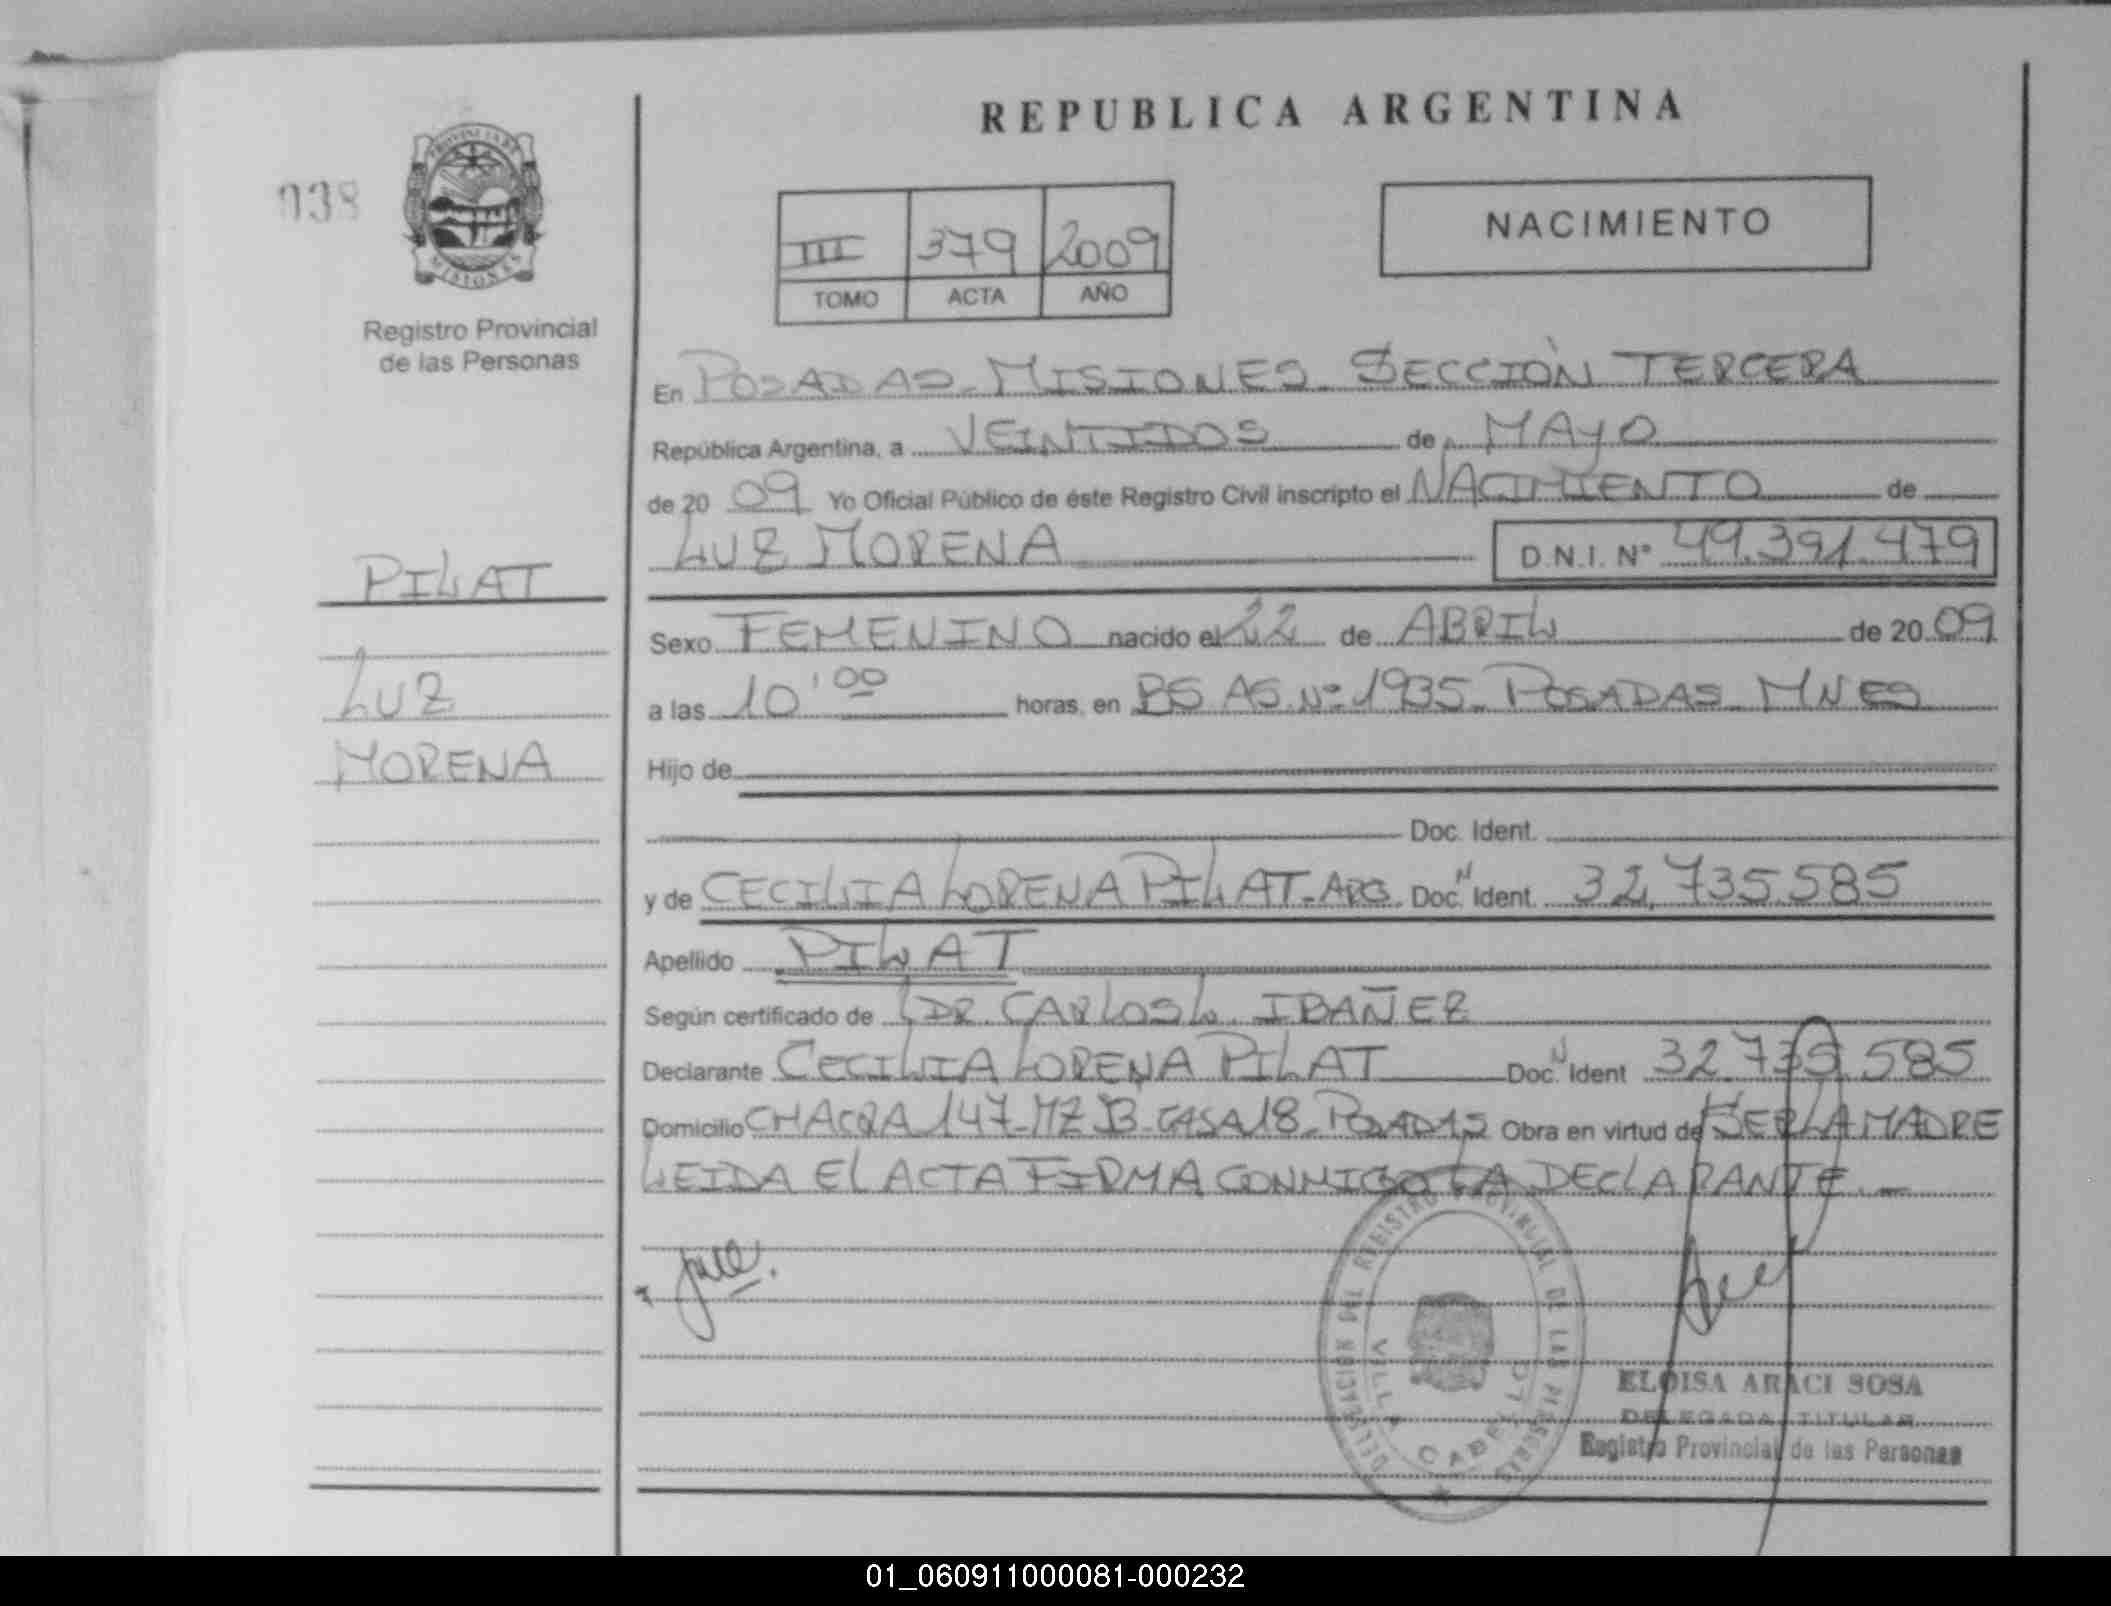 REPUBLICA ARGENTINA
038
PROVINCIA DE
MISIONES
Registro Provincial
de las Personas
III 379 2009
TOMO ACTA AÑO
NACIMIENTO
En POSADAS - MISIONES - SECCIÓN TERCERA
República Argentina, a VEINTIDOS de MAYO
de 20 09 Yo Oficial Público de éste Registro Civil inscripto el NACIMIENTO de
LUZ MORENA D.N.I. N° 49.391.479
PILAT
LUZ
MORENA
Sexo FEMENINO nacido el 22 de ABRIL de 20 09
a las 10'00 horas, en BS AS. N° 1935 - POSADAS - MNES
Hijo de
Doc. Ident.
y de CECILIA LORENA PILAT - ARG. Doc. N Ident. 32.735.585
Apellido PILAT
Según certificado de DR. CARLOS L. IBAÑEZ
Declarante CECILIA LORENA PILAT Doc. N Ident 32.735.585
Domicilio CHACRA 147 - MZ B - CASA 18 - POSADAS Obra en virtud de SER LA MADRE
LEIDA EL ACTA FIRMA CONMIGO LA DECLARANTE. -
DELEGACION DEL REGISTRO PROVINCIAL DE LAS PERSONAS
VILLA CABELLO
ELOISA ARACI SOSA
DELEGADA TITULAR
Registro Provincial de las Personas
01_060911000081-000232